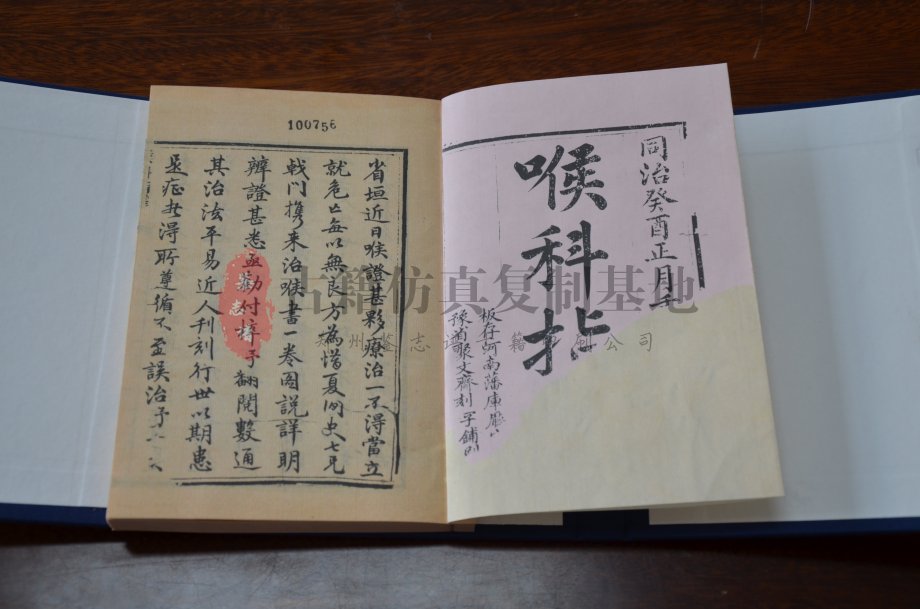 同治癸酉正月
喉科
板存河南藩庫廳
豫省聚文齋刻字鋪刷
100756
省垣近日喉證甚夥療治一不得當立
就危亡每以無良方為惜夏間史七兄
戟门携来治喉書一卷圖說詳明
辨證甚悉亟勸付梓予翻閱數通
其治法平易近人刊刻行世以期患
是症者得所遵循不至誤治予
古籍仿真复制基地
州鉴志 籍 公司